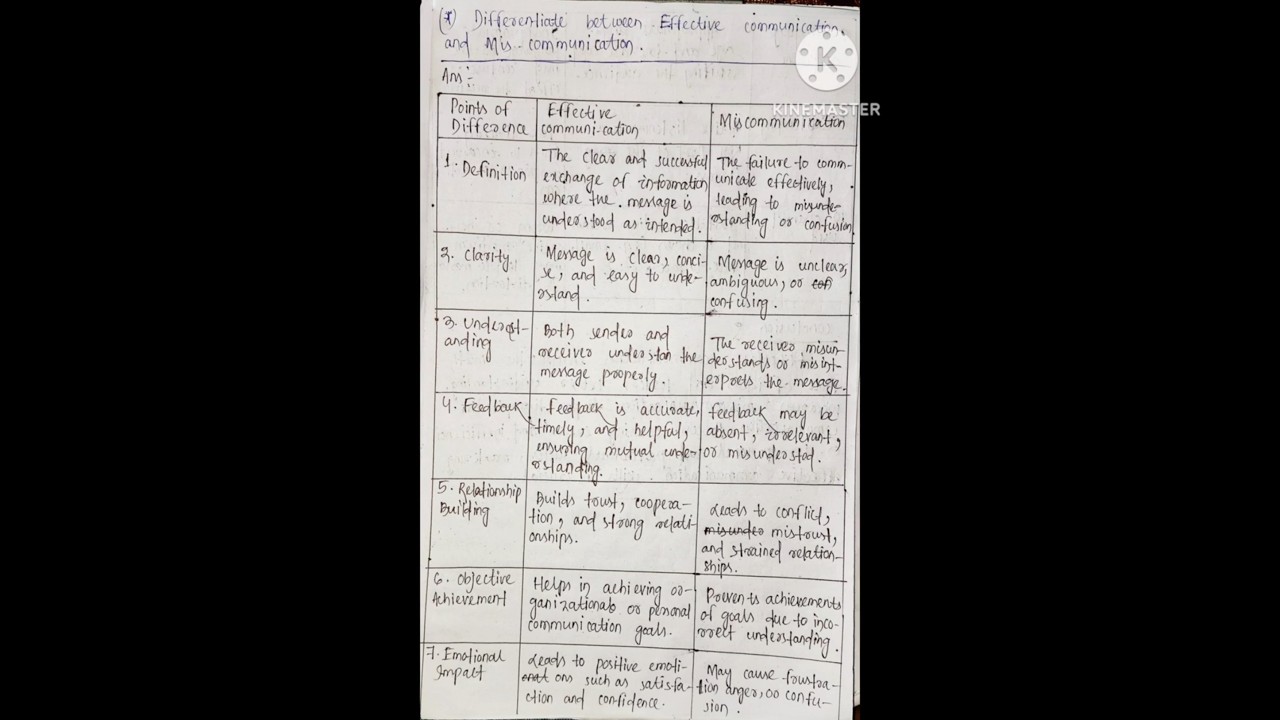 (*) Differentiate between Effective communication,
and Mis-communication.
KINEMASTER
Ans:-
Points of
Difference
Effective
communi-cation
Miscommunication
1. Definition
The clear and successful
exchange of information
where the message is
understood as intended.
The failure to comm-
unicate effectively,
leading to misunde-
rstanding or confusion
2. Clarity
Message is clear, conci-
se, and easy to unde-
rstand.
Message is unclear,
ambiguous, or
confusing.
3. Underst-
anding
Both sender and
receiver understan the
message properly.
The receiver misun-
derstands or misint-
erprets the message.
4. Feedback
feedback is accurate,
timely, and helpful,
ensuring mutual unde-
rstanding.
feedback may be
absent, irrelevant,
or misunderstod.
5. Relationship
Building
Builds trust, coopera-
tion, and strong relati-
onships.
Leads to conflict,
misunder mistrust,
and strained relation-
ships.
6. Objective
Achievement
Helps in achieving or-
ganizational or personal
communication goals.
Prevents achievements
of goals due to inco-
rrect understanding.
7. Emotional
Impact
Leads to positive emoti-
ons such as satisfa-
ction and confidence.
May cause frustra-
tion anger, or confu-
sion.